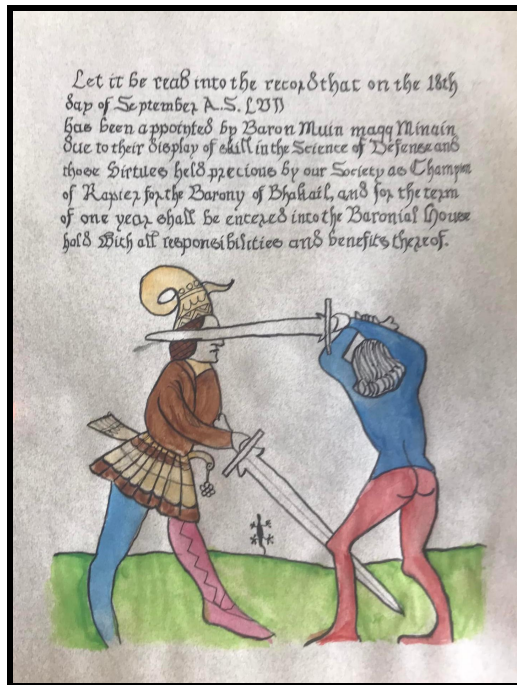 Let it be read into the record that on the 18th
day of September A.S. LVII
has been appointed by Baron Muin maqq Minain
due to their display of skill in the Science of Defense and
those Virtues held precious by our Society as Champion
of Rapier for the Barony of Bhakail, and for the term
of one year shall be entered into the Baronial House
hold With all responsibilities and benefits thereof.